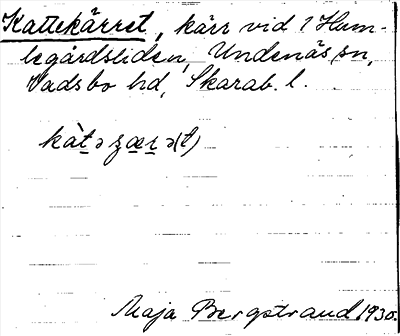 Kattekärret, kärr vid 1 Hum-
legårdsliden, Undenäs sn,
Vadsbo hd, Skarab. l.
kàt̲ə ʒæɽ̲ə(t)
Maja Bergstrand 1930.